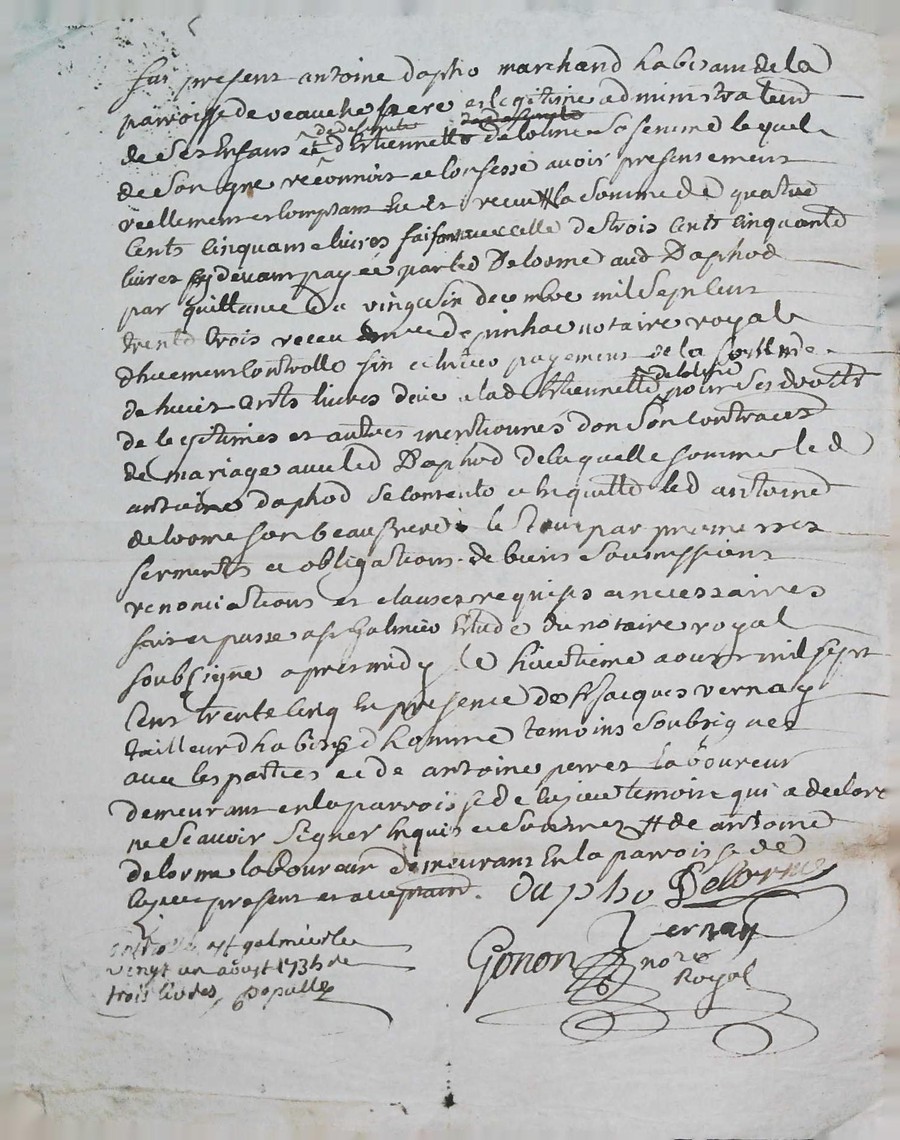 fut present antoine dapho marchand habitant de la
parroisse de veauche pere et legitime administrateur
de deffunte
de ses enfans et d'Etiennette delorme sa femme lequel
de son gre reconnoit et confesse avoir presentement
reellement et comptant eu et receu # la somme de quatre
cents cinquante livres faisant avec celle de trois cents cinquante
livres cy devant payée par led Delorme aud Daphod
par quittance du vingt six decembre mil sept cent
trente trois receu notaire royal
dhuement controllé fin et entier payement de la somme
delorme
de huit cents livres deüe a lad Etiennette pour ses droits
de legitimes et autres mentionnés dans son contract
de mariage avec led Daphod de laquelle somme led
antoine daphod se contente et en quitte led antoine
delorme son beau frere le tout par promesses
serments et obligations de biens soumissions
renonciations et clauses requises et necessaires
fait et passe a st Galmier Etude du notaire royal
soubsigne apres midy le huictieme aoust mil sept
cens trente cinq en presence de sr Jacques vernay
tailleur d'habits d'homme temoins soubsignes
avec les parties et de antoine perret laboureur
demeurant en la parroisse de temoin qui a declaré
ne scavoir signer enquis et sommez # de antoine
delorme laboureur demeurant En la parroisse de
present et acceptant. Dapho Delorme
vernay
st galmier le
vingt un aoust 1735 re
trois livres
Gonon nore
Royal